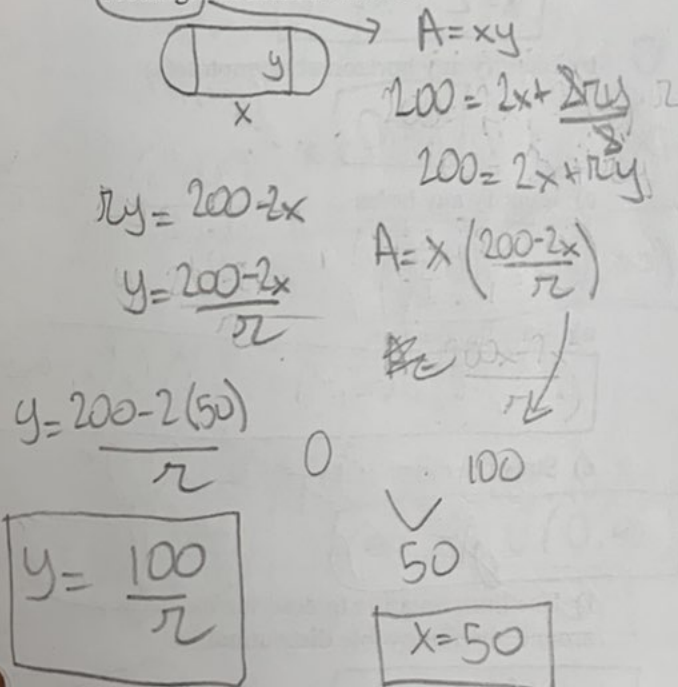 y
x
A = xy
200 = 2x + 2πy/2
200 = 2x + πy
πy = 200-2x
A = x (200-2x/π)
y = 200-2x/π
y = 200-2(50)/π
0
100
50
y = 100/π
x = 50